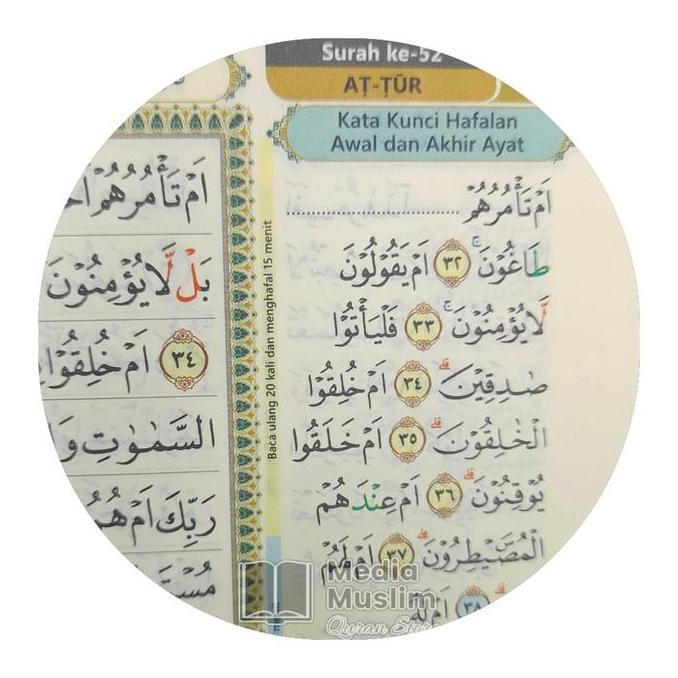 Surah ke-52
AṬ-ṬŪR
Kata Kunci Hafalan
Awal dan Akhir Ayat
اَمْ تَأْمُرُهُمْ
طَاغُوْنَۚ ٣٢ اَمْ يَقُوْلُوْنَ
لَّا يُؤْمِنُوْنَۚ ٣٣ فَلْيَأْتُوْا
صٰدِقِيْنَۗ ٣٤ اَمْ خُلِقُوْا
الْخٰلِقُوْنَۗ ٣٥ اَمْ خَلَقُوا
يُوْقِنُوْنَۗ ٣٦ اَمْ عِنْدَهُمْ
الْمُصَۣيْطِرُوْنَۗ ٣٧ اَمْ لَهُمْ
٣٨ اَمْ لَهُ
Baca ulang 20 kali dan menghafal 15 menit
اَمْ تَأْمُرُهُمْ
بَلْ لَّا يُؤْمِنُوْنَ
٣٤ اَمْ خُلِقُوْا
السَّمٰوٰتِ
رَبِّكَ اَمْ هُمُ
Media
Muslim
Quran Store